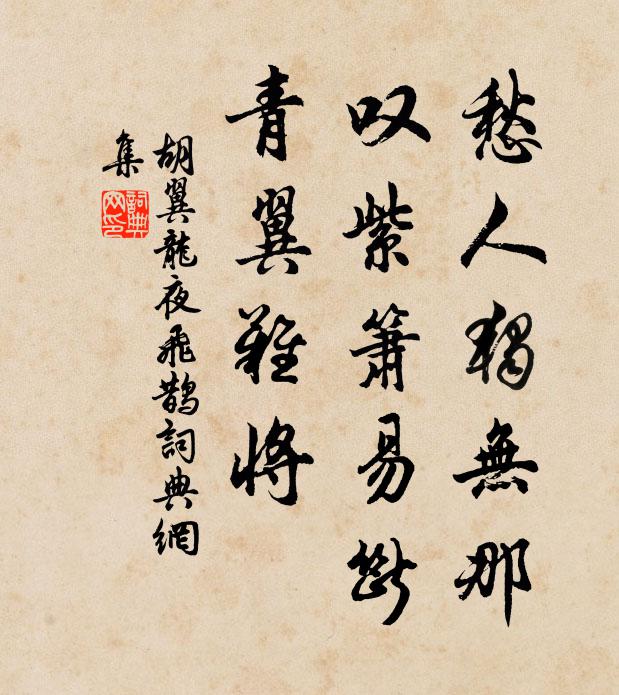 愁人獨無那
叹紫簫易斷
青翼難將
胡翼龍夜飛鵲詞典網
集
詞典
网印